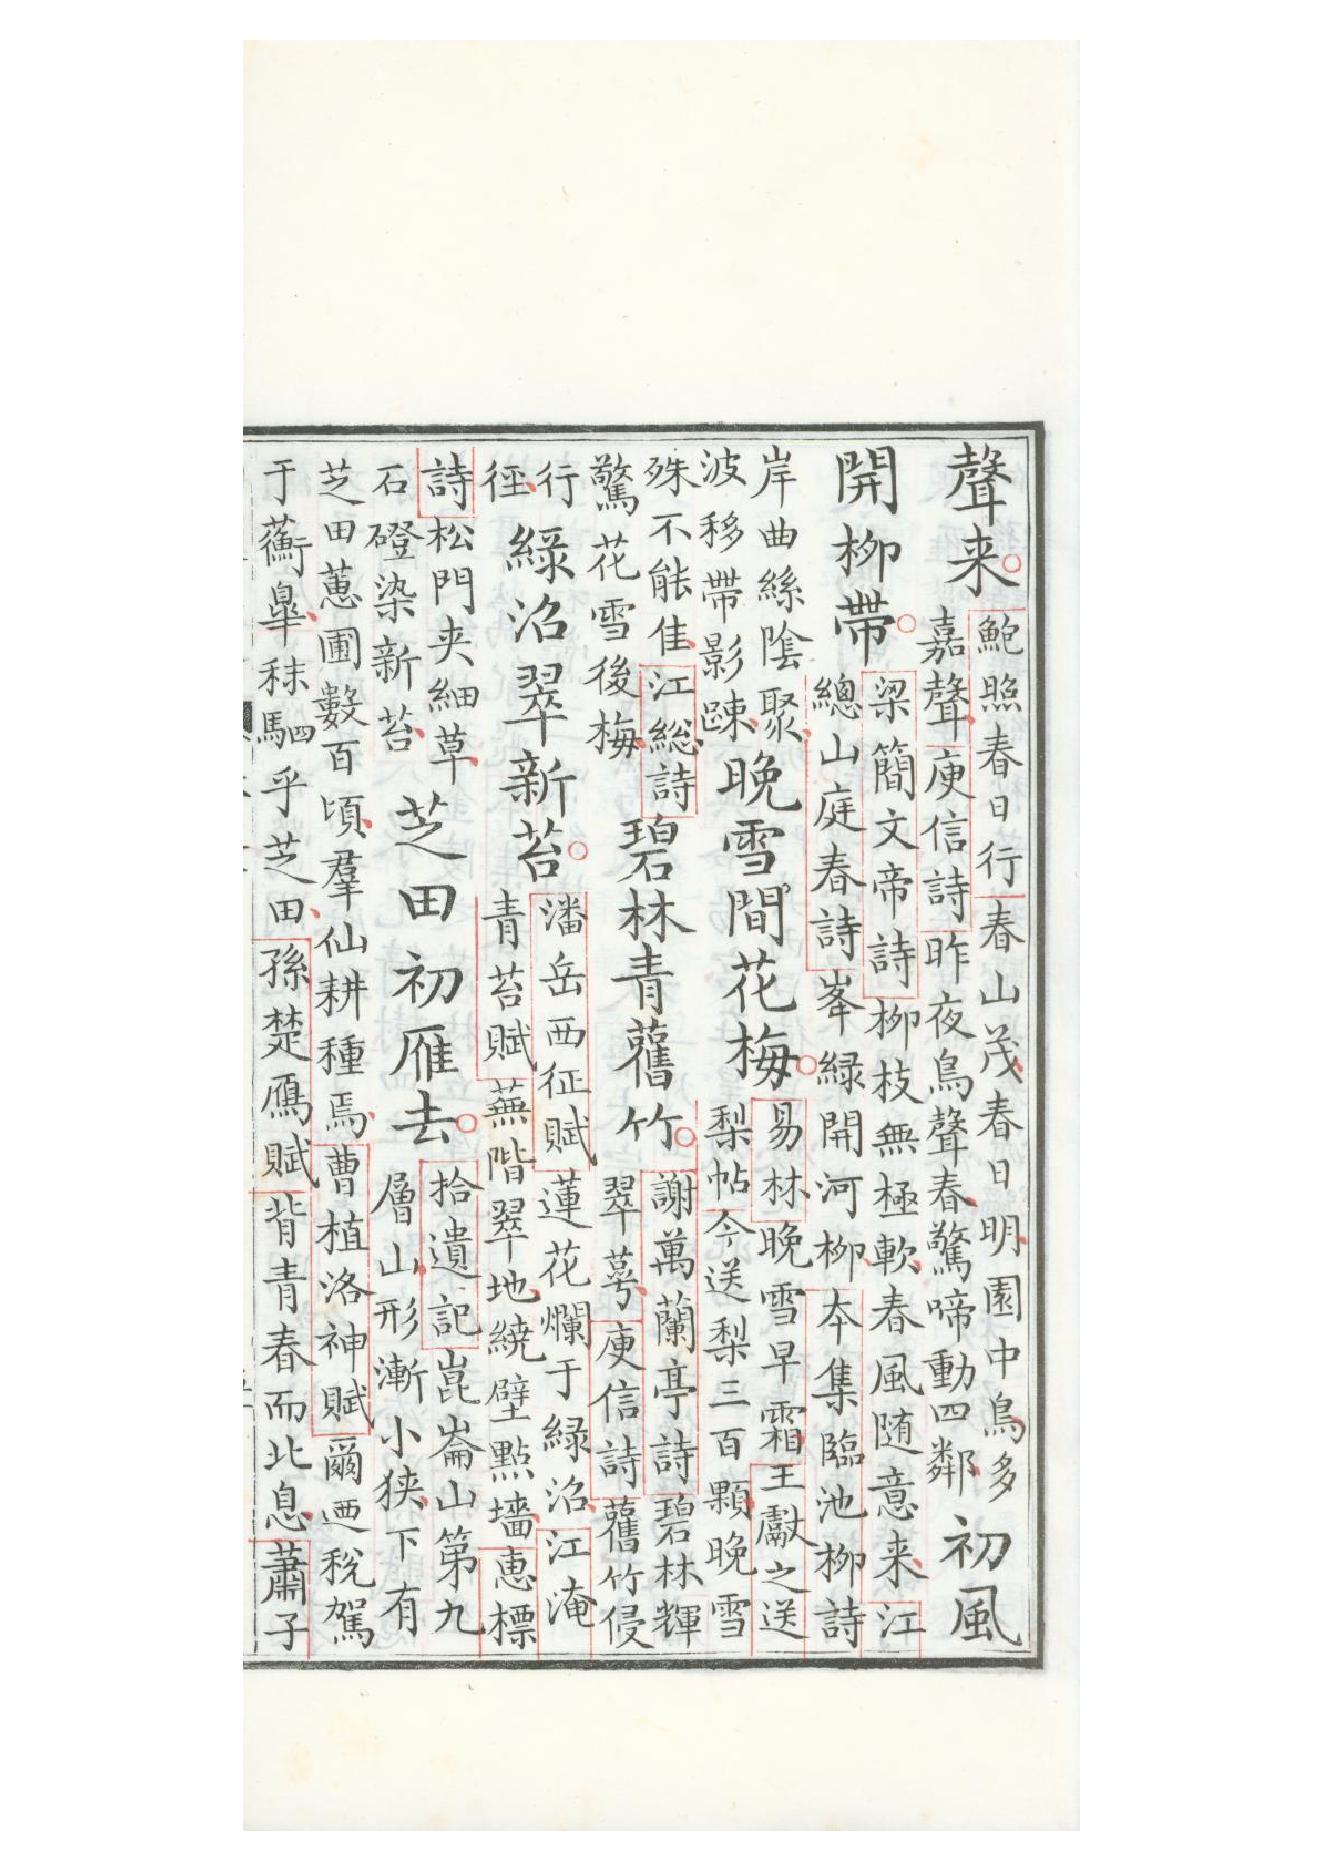 聲来
鮑照春日行春山茂春日明園中鳥多
嘉聲庾信詩昨夜鳥聲春驚啼動四鄰
初風
開柳帶
梁簡文帝詩柳枝無極軟春風随意来江
總山庭春詩峯緑開河柳夲集臨池柳詩
岸曲絲陰聚
波移帶影踈
晚雪間花梅
易林晚雪早霜王獻之送
梨帖今送梨三百顆晚雪
殊不能佳江総詩
驚花雪後梅
碧林青舊竹
謝萬蘭亭詩碧林輝
翠萼庾信詩舊竹侵
行
徑
緑沼翠新苔
潘岳西征賦蓮花爛于緑沼江淹
青苔賦蕪階翠地繞壁點墻惠標
詩松門夹細草
石磴染新苔
芝田初雁去
拾遺記崑崙山第九
層山形漸小狭下有
芝田蕙圃數百頃羣仙耕種焉曹植洛神賦爾迺稅駕
于蘅皐秣駟乎芝田孫楚鴈賦背青春而北息蕭子